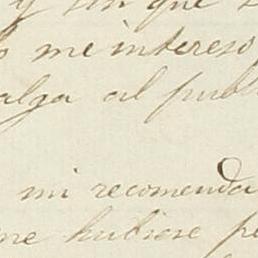 y sin que
me intereso
alga al publ
mi recomenda
me hubiese pe